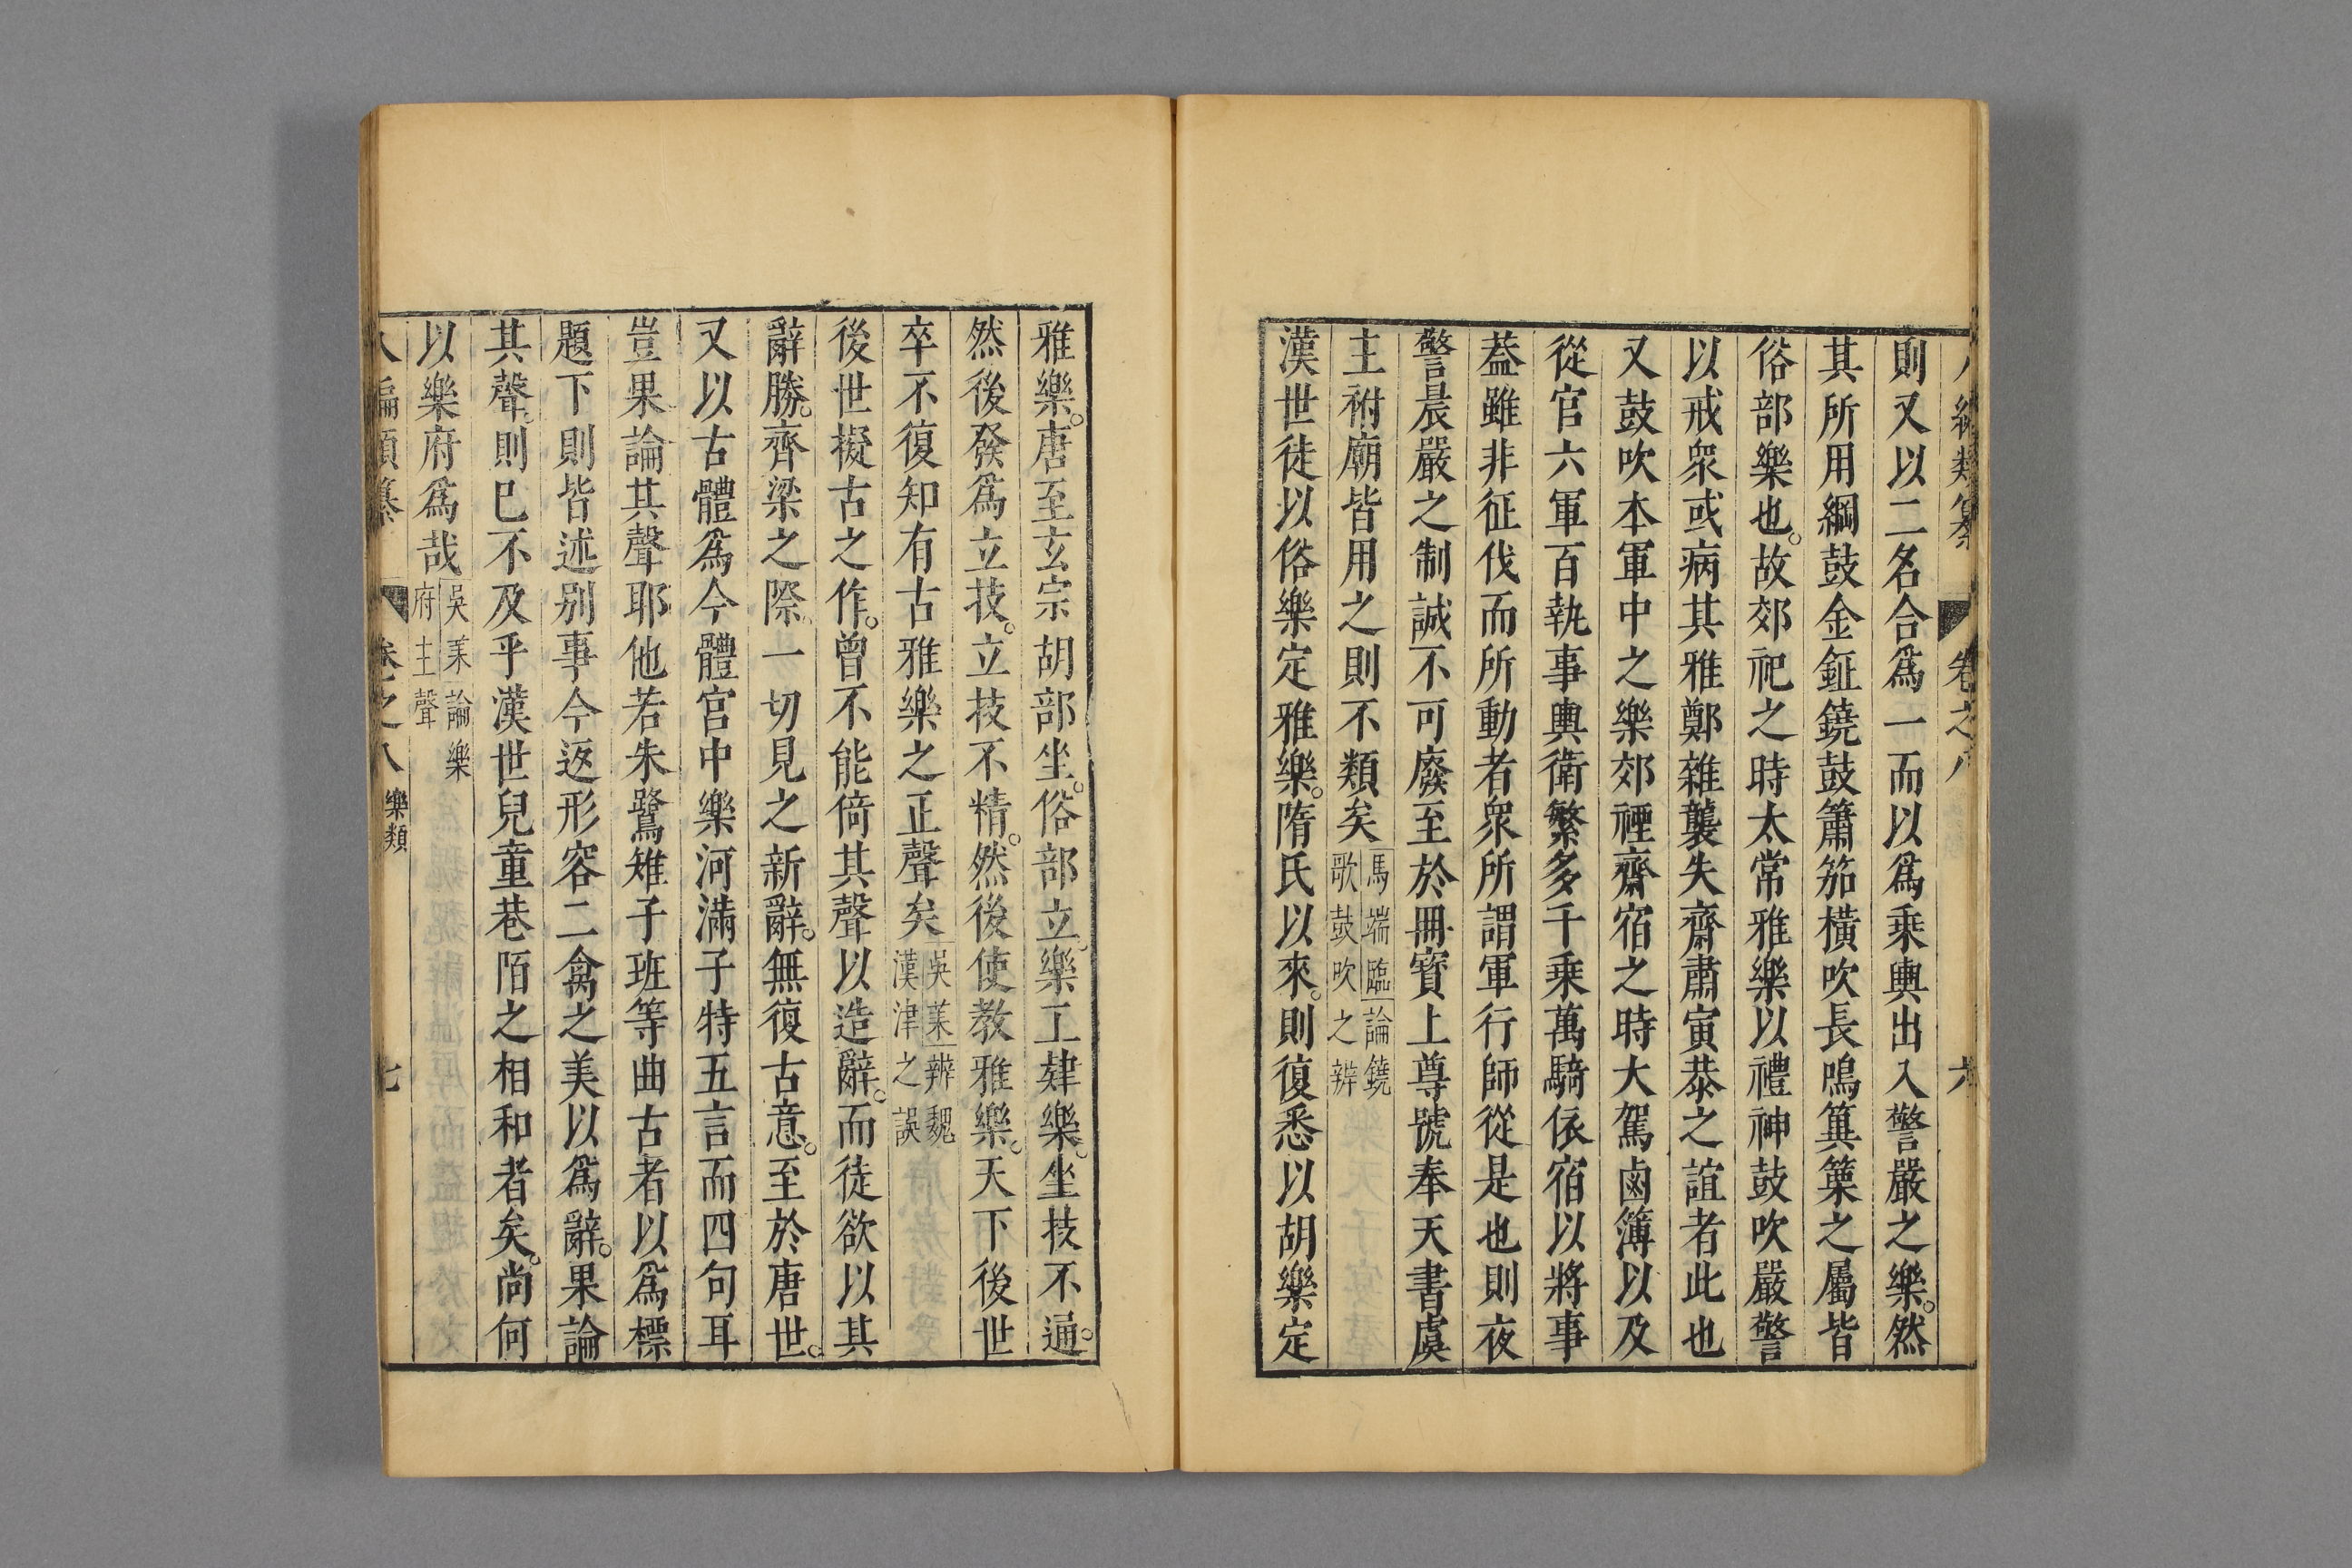 編類纂 卷之八 六
則又以二名合爲一而以爲乘輿出入警嚴之樂。然
其所用綱鼓金鉦鐃鼓簫笳橫吹長鳴篳篥之屬皆
俗部樂也。故郊祀之時太常雅樂以禮神鼓吹嚴警
以戒衆或病其雅鄭雜襲失齋肅寅恭之誼者此也
又鼓吹本軍中之樂郊禋齋宿之時大駕鹵簿以及
從官六軍百執事輿衛繁多千乘萬騎依宿以將事
葢雖非征伐而所動者衆所謂軍行師從是也則夜
警晨嚴之制誠不可廢至於冊寶上尊號奉天書虞
主祔廟皆用之則不類矣 馬端臨論鐃歌鼓吹之辨
漢世徒以俗樂定雅樂。隋氏以來。則復悉以胡樂定
雅樂。唐至玄宗胡部坐。俗部立。樂工肄樂。坐技不通。
然後發爲立技。立技不精。然後使教雅樂。天下後世
卒不復知有古雅樂之正聲矣 吳萊辨魏漢津之誤
後世擬古之作。曾不能倚其聲以造辭。而徒欲以其
辭勝。齊梁之際、一切見之新辭。無復古意。至於唐世。
又以古體爲今體宮中樂河滿子特五言而四句耳
豈果論其聲耶他若朱鷺雉子班等曲古者以爲標
題下則皆述别事今返形容二禽之美以爲辭。果論
其聲。則巳不及乎漢世兒童巷陌之相和者矣。尚何
以樂府爲哉 吳萊論樂府主聲
八編類纂 卷之八 樂類 七